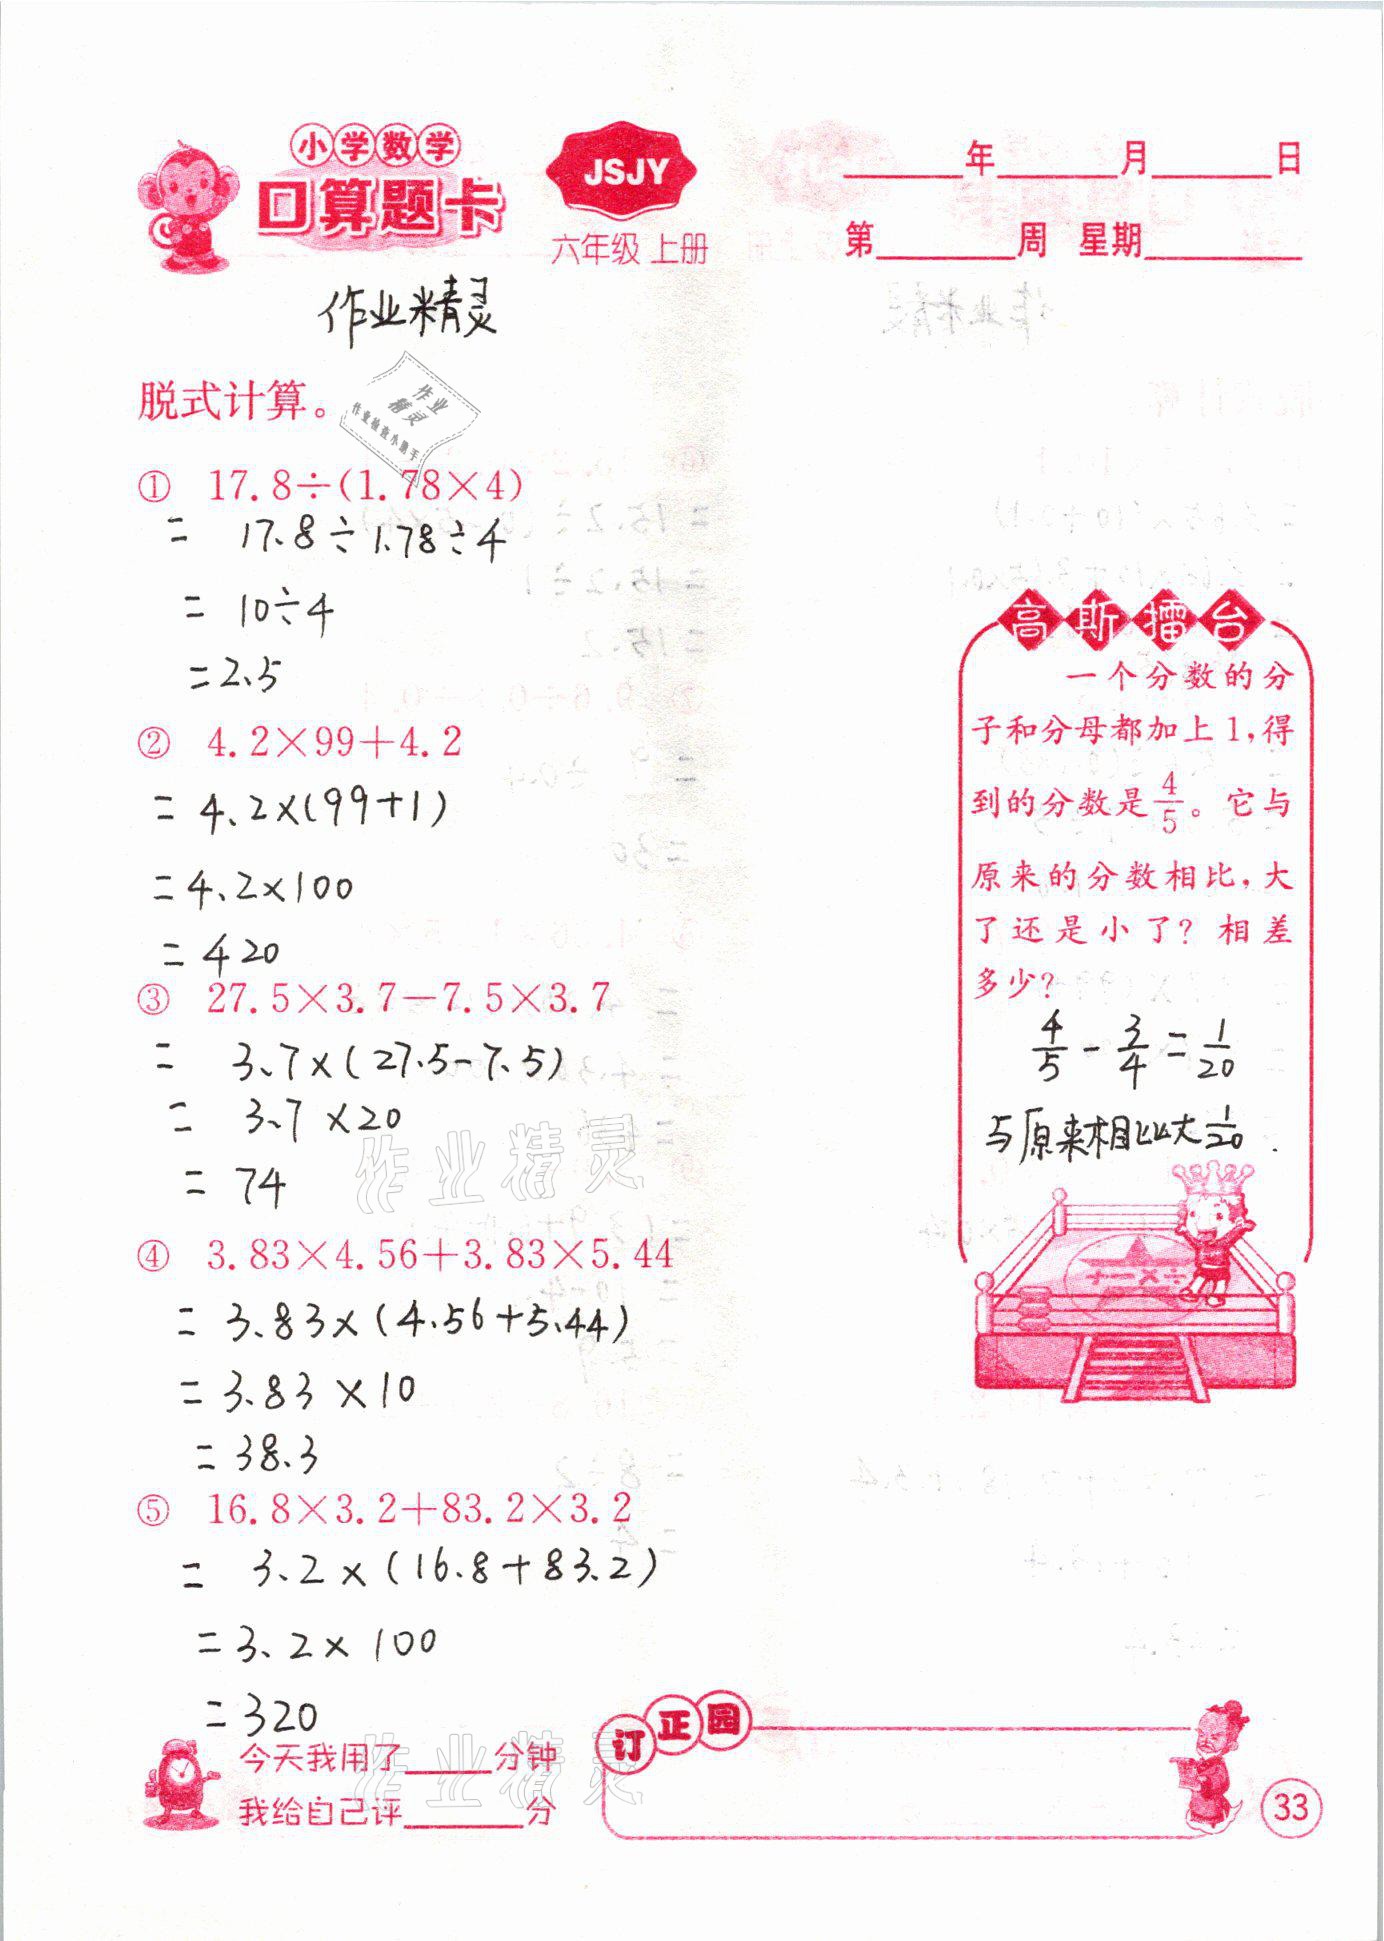 小学数学
口算题卡
JSJY
六年级 上册
______年______月______日
第______周 星期______
作业精灵
作业
精灵
作业检查小助手
脱式计算。
① 17.8÷(1.78×4)
= 17.8÷1.78÷4
= 10÷4
=2.5
② 4.2×99+4.2
= 4.2×(99+1)
=4.2×100
= 420
③ 27.5×3.7-7.5×3.7
= 3.7×(27.5-7.5)
= 3.7×20
= 74
④ 3.83×4.56+3.83×5.44
= 3.83×(4.56+5.44)
= 3.83×10
= 38.3
⑤ 16.8×3.2+83.2×3.2
= 3.2×(16.8+83.2)
= 3.2×100
= 320
高斯擂台
一个分数的分
子和分母都加上1,得
到的分数是4/5。它与
原来的分数相比,大
了还是小了?相差
多少?
4/5-3/4=1/20
与原来相比大1/20.
+-×÷
作业精灵
作业精灵
今天我用了______分钟
我给自己评______分
订正园
33